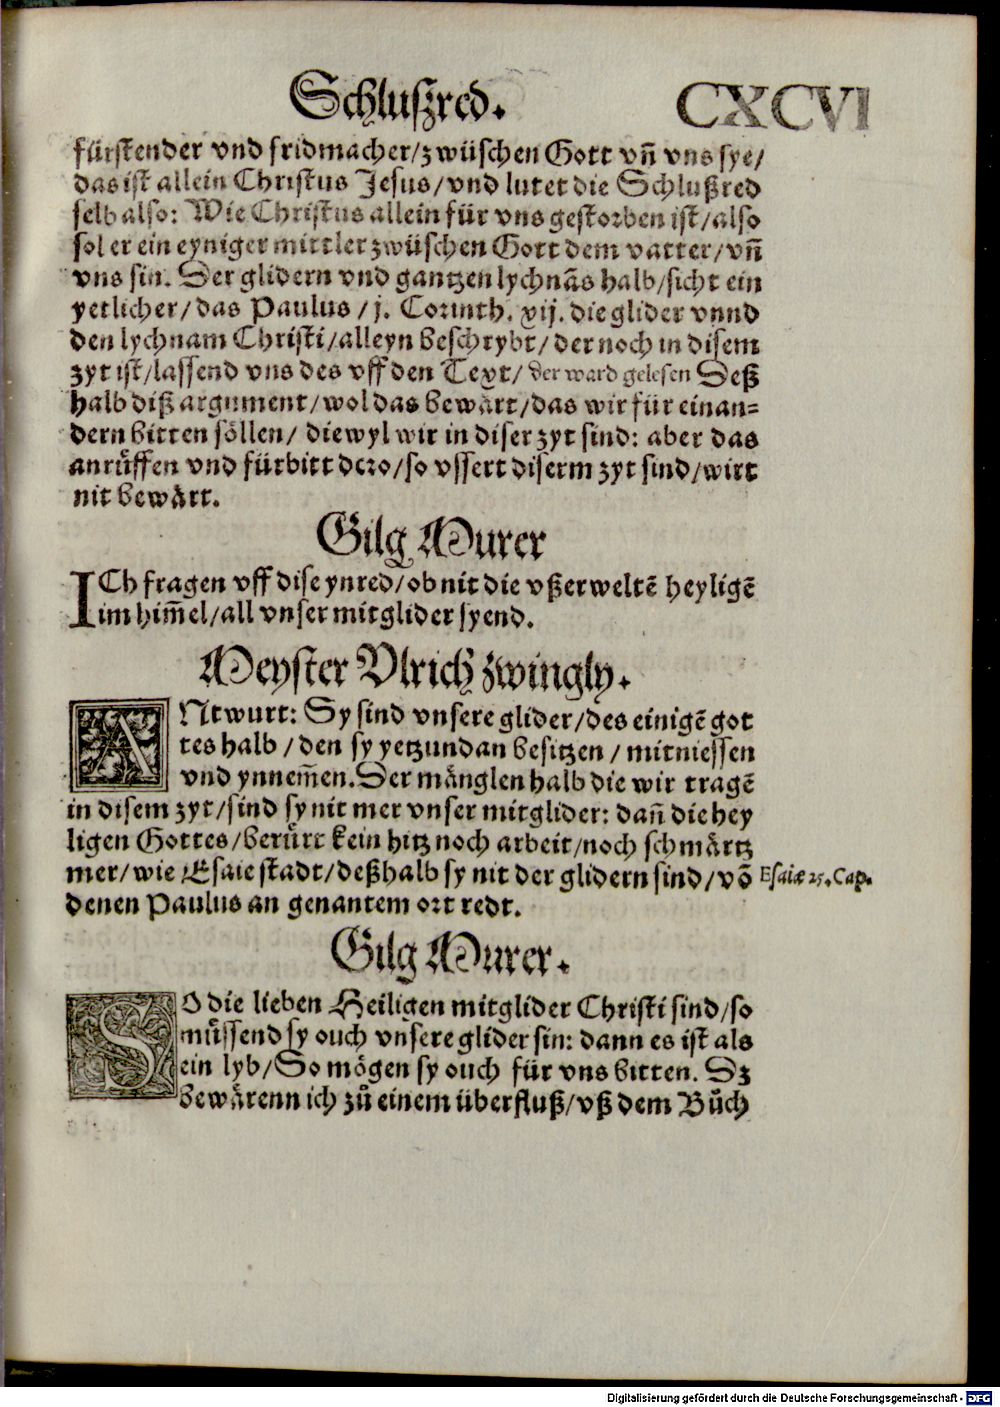 Schluszred. CXCVI
fürstender vnd fridmacher/zwüschen Gott vñ vns sye/
das ist allein Christus Jesus/vnd lutet die Schlußred
selb also: Wie Christus allein für vns gestorben ist/also
sol er ein eyniger mittler zwüschen Gott dem vatter/vñ
vns sin. Der glidern vnd gantzen lychnās halb/sicht ein
yetlicher/das Paulus/j. Corinth. xij. die glider vnnd
den lychnam Christi/alleyn beschrybt/der noch in disem
zyt ist/lassend vns des vff den Text/ der ward gelesen Deß
halb diß argument/wol das bewårt/das wir für einan=
dern bitten söllen/ diewyl wir in diser zyt sind: aber das
anrůffen vnd fürbitt dero/so vssert diserm zyt sind/wirt
nit bewårt.
Gilg Murer
ICh fragen vff dise ynred/ob nit die vßerweltē heyligē
im him̃el/all vnser mitglider syend.
Meyster Vlrich Zwingly.
ANtwurt: Sy sind vnsere glider/des einigē got
tes halb/den sy yetzundan besitzen/mitniessen
vnd ynnem̃en. Der mänglen halb die wir tragē
in disem zyt/sind sy nit mer vnser mitglider: dañ die hey
ligen Gottes/berůrt kein hitz noch arbeit/noch schmårtz
mer/wie Esaie stadt/deßhalb sy nit der glidern sind/vō
Esaiæ 25. Cap.
denen Paulus an genantem ort redt.
Gilg Murer.
SO die lieben Heiligen mitglider Christi sind/so
můssend sy ouch vnsere glider sin: dann es ist als
ein lyb/So mögen sy ouch für vns bitten. Dz
bewårenn ich zů einem überfluß/vß dem Bůch
Digitalisierung gefördert durch die Deutsche Forschungsgemeinschaft - DFG